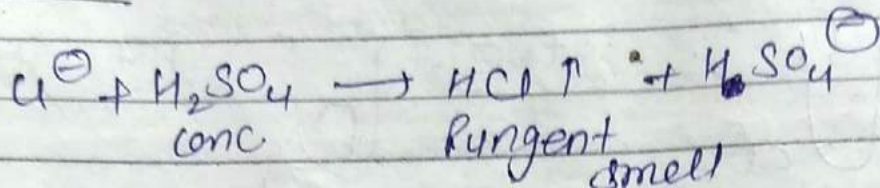 Cl⊖ + H₂SO₄ → HCl ↑ + HSO₄⊖
conc. Pungent
smell